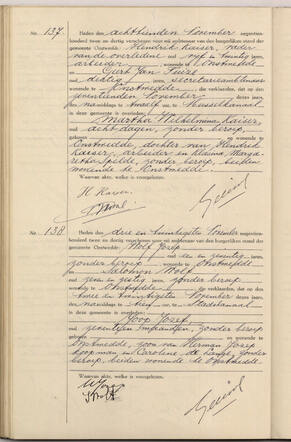 No. 137. Heden den achttienden November negentien-
honderd twee en dertig verschenen voor mij ambtenaar van den burgerlijken stand der
gemeente Onstwedde: Hendrik Kaiser, vader
van de overledene oud vijf en twintig jaren,
arbeider wonende te Onstwedde
en Gert Jan
oud dertig jaren, secretarieambtenaar
wonende te Onstwedde, die verklaarden, dat op den
zeventienden November dezer jaars,
des namiddags te twaalf ure, te Musselkanaal
in deze gemeente is overleden:
Martha Wilhelmina Kaiser,
oud acht dagen, zonder beroep,
Onstwedde, dochter van Hendrik
Kaiser, arbeider en Klasina Marga-
retha Spelde, zonder beroep, beiden
wonende te Onstwedde.
Waarvan akte, welke is voorgelezen.
H Kaiser
No. 138. Heden den drie en twintigsten November negentien-
honderd twee en dertig verschenen voor mij ambtenaar van den burgerlijken stand der
gemeente Onstwedde: Wolf Jozef
oud een en zestig jaren,
zonder beroep wonende te Onstwedde
en Salomon Wolf
oud zestig jaren, zonder beroep
wonende te Onstwedde, die verklaarden, dat op den
twee en twintigsten November dezer jaars,
des namiddags te ure, te Stadskanaal
in deze gemeente is overleden:
Joop Jozef
oud zeventien maanden, zonder beroep
Onstwedde, zoon van Herman Jozef
koopman en Caroline de Lange, zonder
beroep, beiden wonende te Onstwedde
Waarvan akte, welke is voorgelezen.
W Jozef
S Wolf